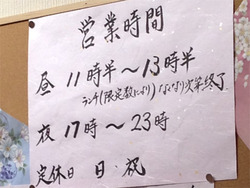 営業時間
昼 11時半~13時半
ランチ(限定数により)なくなり次第終了
夜 17時~23時
定休日 日・祝